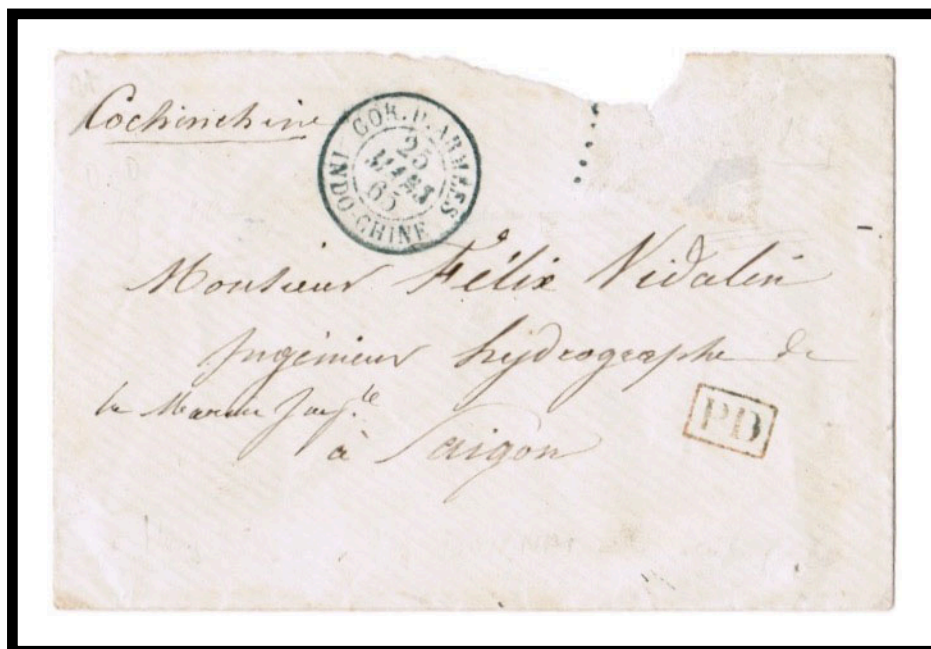 Cochinchine
COR. D. ARMEES
25
MARS
65
INDO-CHINE
Monsieur Félix Vidalin
Ingénieur hydrographe de
la Marine Imp.le
à Saigon
PD